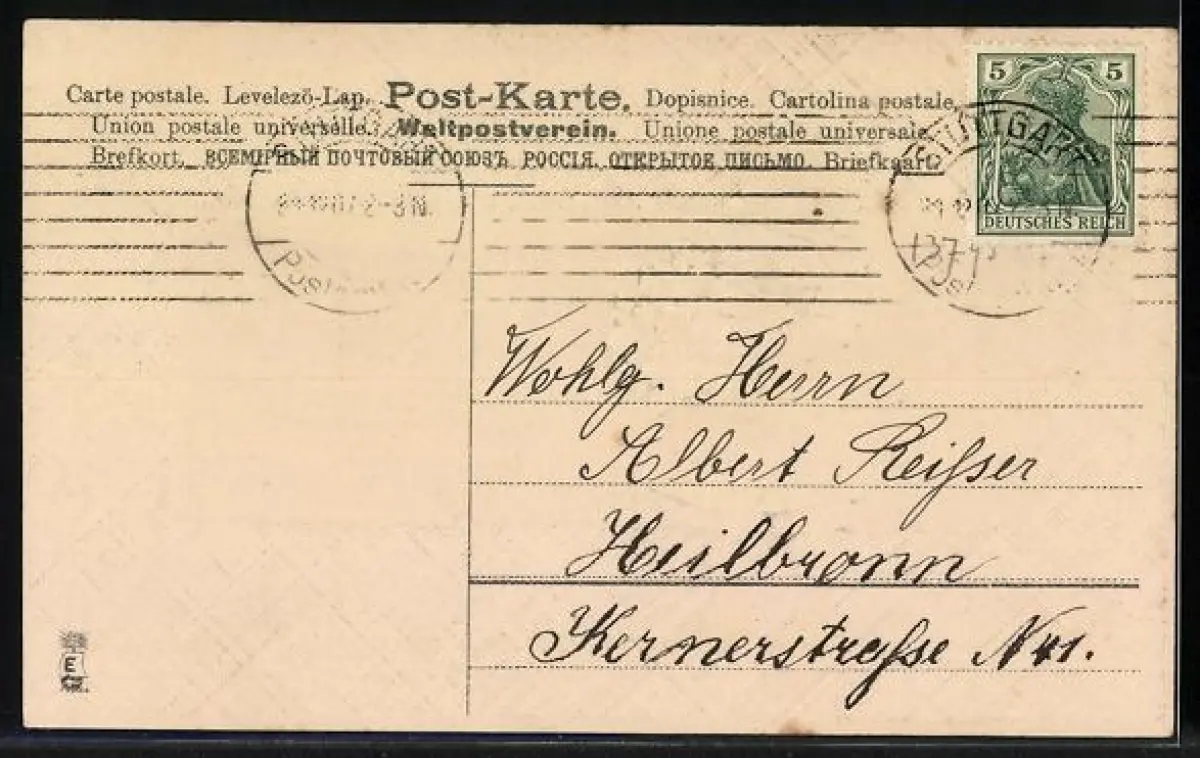 Carte postale. Levelezö-Lap. Post-Karte. Dopisnice. Cartolina postale.
Union postale universelle. Weltpostverein. Unione postale universale.
Brefkort. ВСЕМІРНЫЙ ПОЧТОВЫЙ СОЮЗЪ РОССІЯ. ОТКРЫТОЕ ПИСЬМО. Briefkaart.
5 5
STUTTGART
DEUTSCHES REICH
2-3N.
Wohlg. Herrn
Albert Reiſser
Heilbronn
Kernerstraſse
E